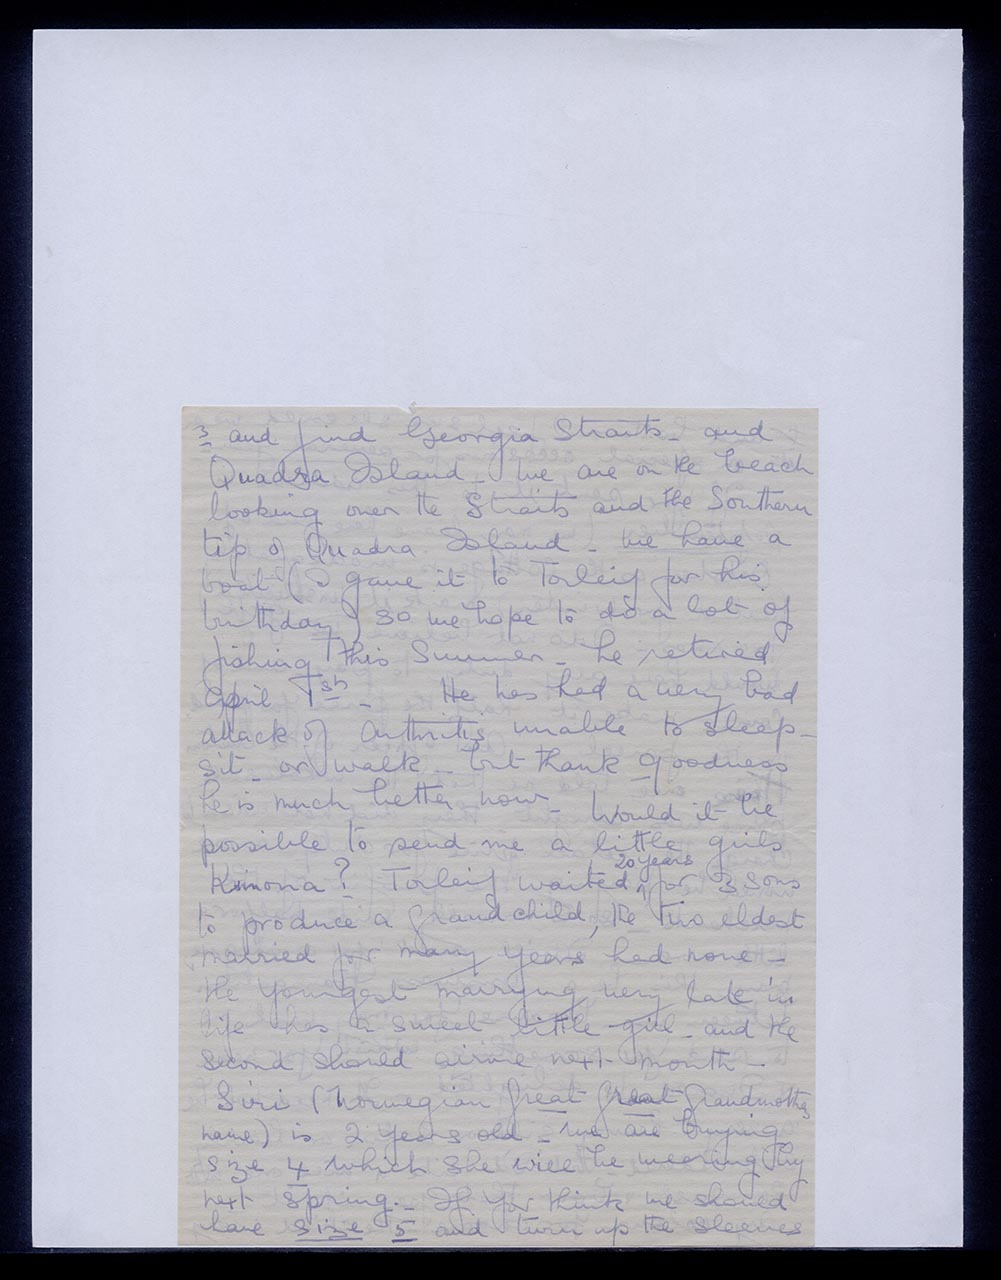 3 and find Georgia Straits - and
Quadra Island - We are on the beach
looking over the Straits and the Southern
tip of Quadra Island - We have a
boat (I gave it to Torleif for his
birthday) so we hope to do a lot of
fishing this Summer - he retired
April 1st - He has had a very bad
attack of Arthritis unable to sleep -
sit - or walk - but thank goodness
he is much better now - Would it be
possible to send me a little girls
Kimona? Torleif waited 20 years for 3 sons
to produce a grandchild, the two eldest
married for many years had none -
the youngest marrying very late in
life has a sweet little girl - and the
second should arrive next month -
Siri (Norwegian Great Great Grandmothers
name) is 2 years old - we are buying
size 4 which she will be wearing by
next Spring. - If you think we should
have size 5 and turn up the sleeves